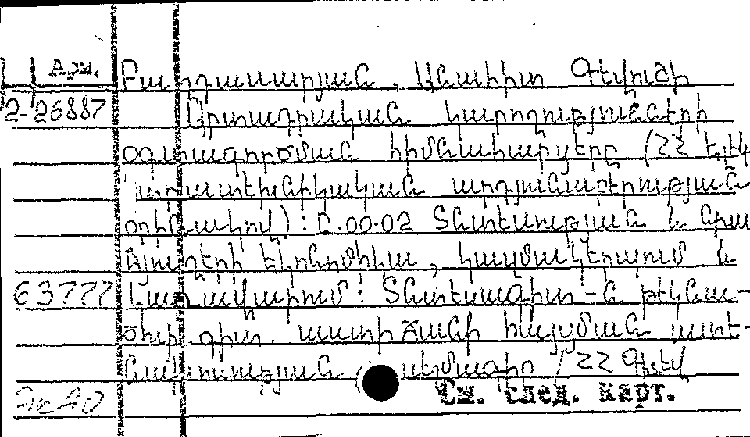 Արմ. Բաղդասարյան, Անահիտ Գեվուշի
2-26887 Արտադրական կարողությունների
օգտագործման հիմնահարցերը (ՀՀ էլեկ
տրատեխնիկական արդյունաբերության
օրինակով): Ը.00.02 Տնտեսության և նրա
ճյուղերի էկոնոմիկա, կազմակերպում և
63777 կառավարում: Տնտեսագիտ-ն թեկնա-
ծուի գիտ. աստիճանի հայցման ատե-
նախոսության սեղմագիր / ՀՀ Գետկ
См. след. карт.